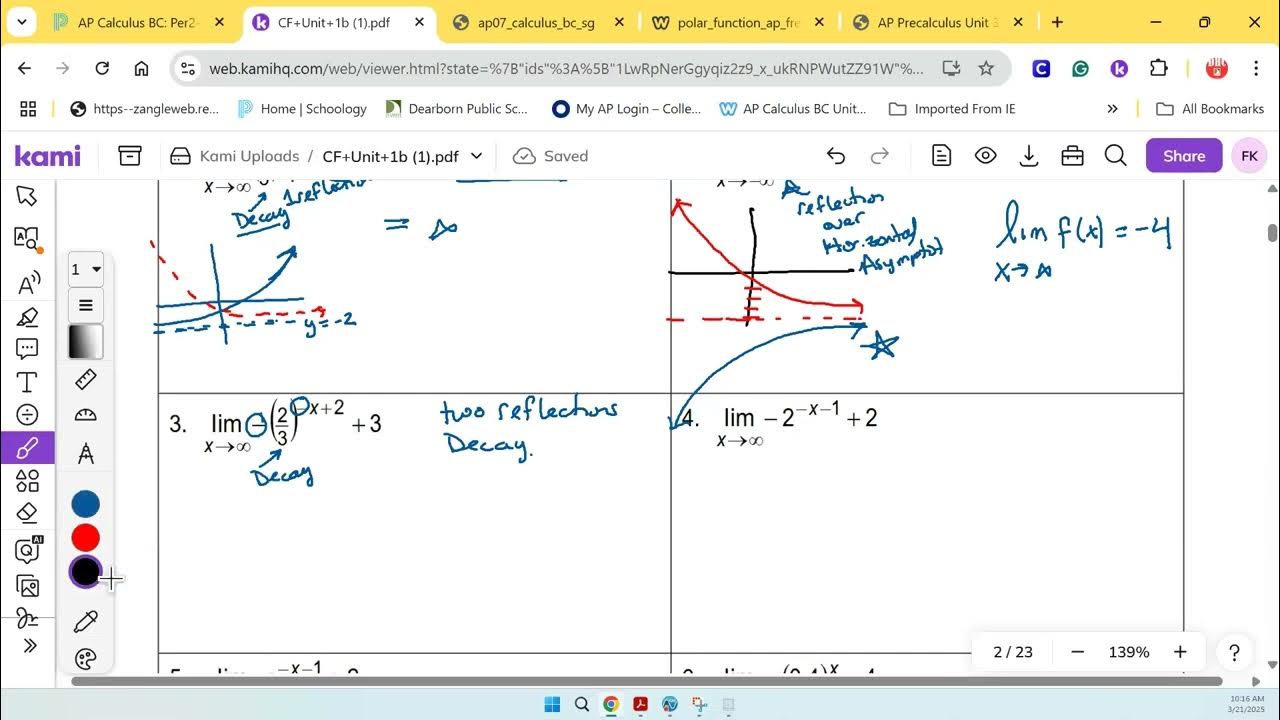 AP Calculus BC: Per2-
CF+Unit+1b (1).pdf
ap07_calculus_bc_sg
polar_function_ap_fre
AP Precalculus Unit 3
web.kamihq.com/web/viewer.html?state=%7B"ids"%3A%5B"1LwRpNerGgyqiz2z9_x_ukRNPWutZZ91W"%...
https--zangleweb.re...
Home | Schoology
Dearborn Public Sc...
My AP Login – Colle...
AP Calculus BC Unit...
Imported From IE
»
All Bookmarks
kami
Kami Uploads / CF+Unit+1b (1).pdf
Saved
Share
FK
x→∞
1 reflection
Decay
= ∞
y=-2
x→-∞
reflection
over
Horizontal
Asymptot
lim f(x) = -4
x→∞
1
3. lim -(2/3)^-x+2 +3
x→∞
Decay
two reflections
Decay.
4. lim -2^-x-1 +2
x→∞
2 / 23
139%
AI
10:16 AM
3/21/2025